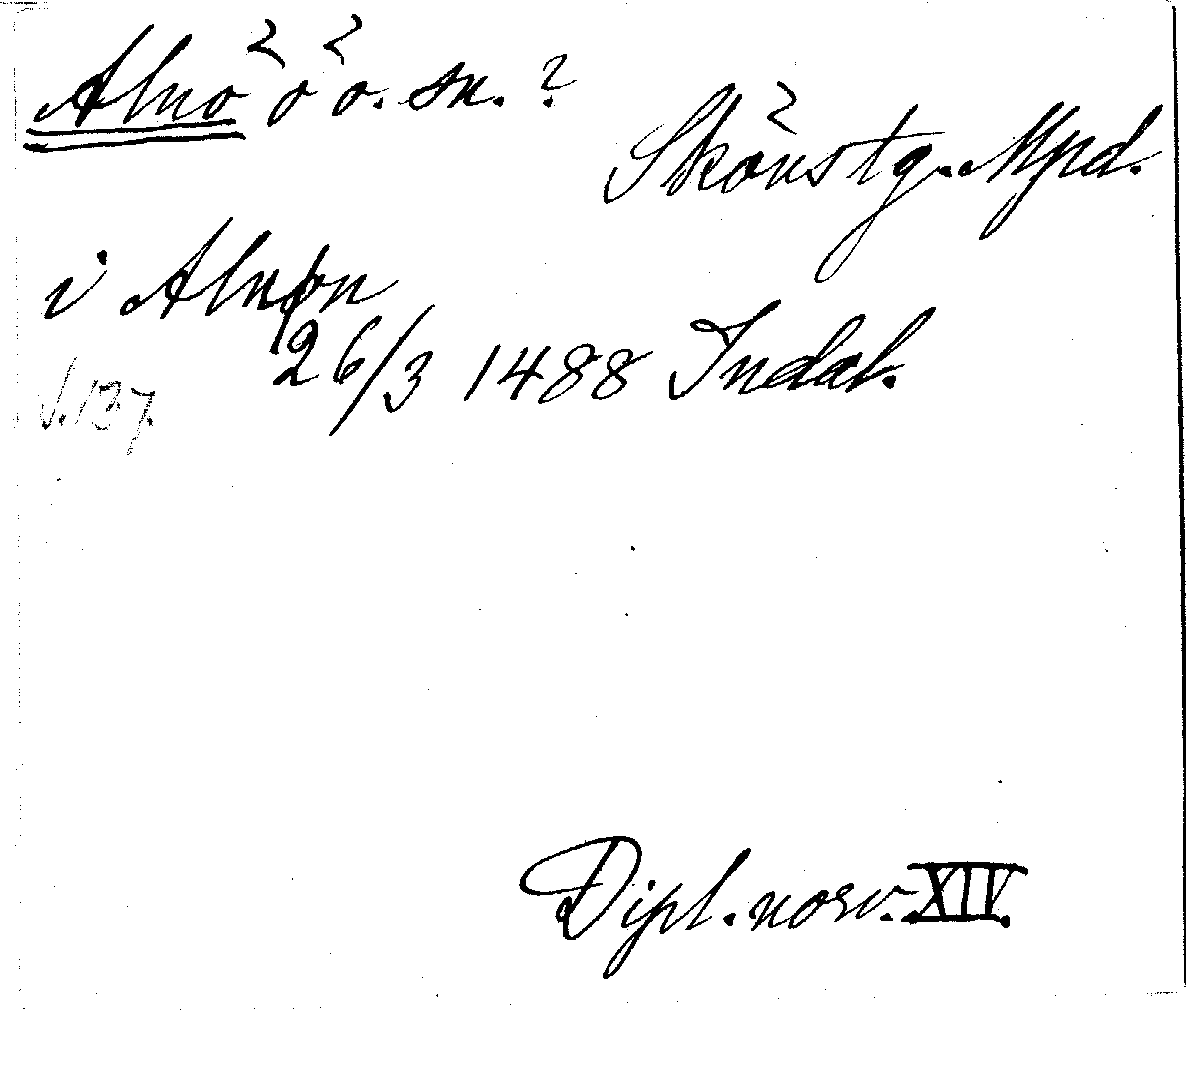 Alnö ö o. sn. ?
Skönstg. Mpd.
i Alnøn
26/3 1488 Indal.
s. 137.
Dipl. norv. XIV.